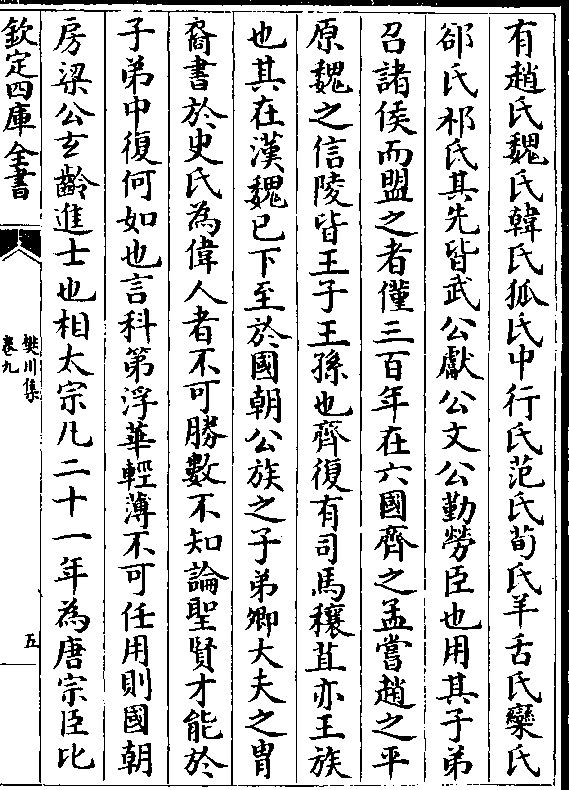 有趙氏魏氏韓氏狐氏中行氏范氏荀氏羊舌氏欒氏
郤氏祁氏其先皆武公獻公文公勤勞臣也用其子弟
召諸侯而盟之者僅三百年在六國齊之孟嘗趙之平
原魏之信陵皆王子王孫也齊復有司馬穰苴亦王族
也其在漢魏已下至於國朝公族之子弟卿大夫之胄
裔書於史氏為偉人者不可勝數不知論聖賢才能於
子弟中復何如也言科第浮華輕薄不可任用則國朝
房梁公玄齡進士也相太宗凡二十一年為唐宗臣比
欽定四庫全書
樊川集
卷九
五